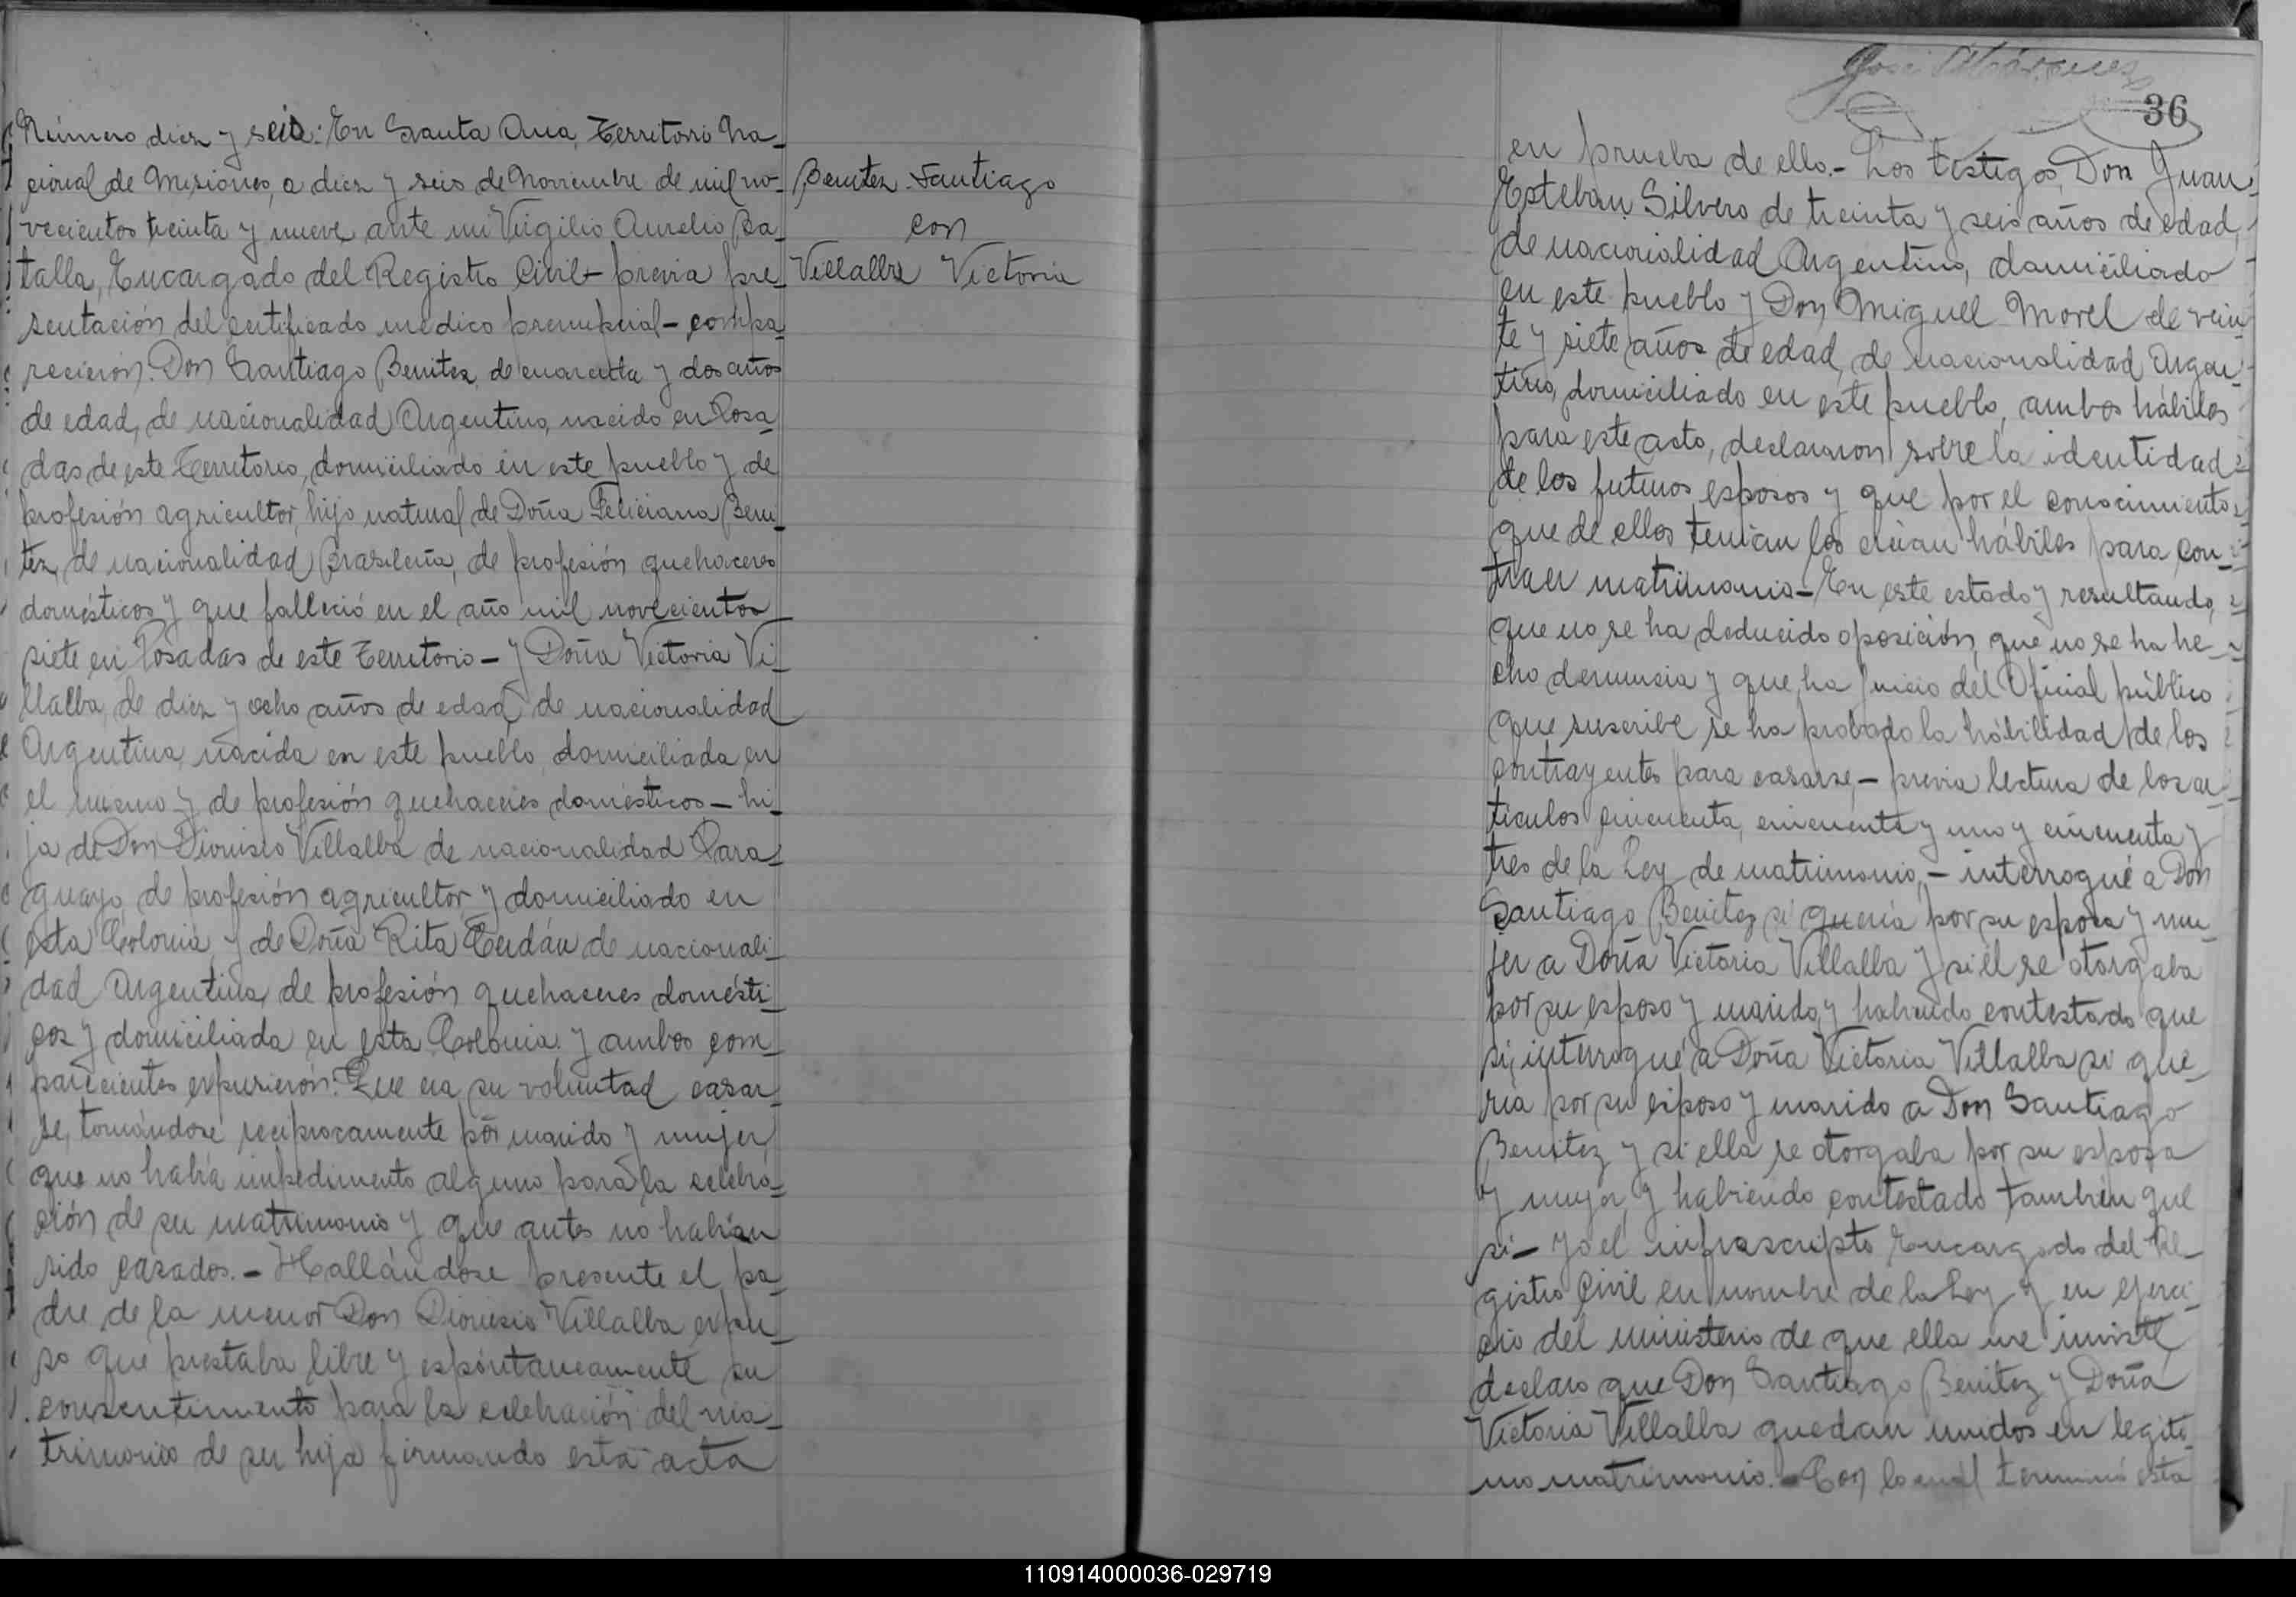 Número diez y seis: En Santa Ana, Territorio Na-
cional de Misiones, a diez y seis de Noviembre de mil no-
vecientos treinta y nueve, ante mi Virgilio Aurelio Ba-
talla, Encargado del Registro Civil - previa pre-
sentación del certificado médico prenupcial - compa-
recieron: Don Santiago Benitez, de cuarenta y dos años
de edad, de nacionalidad Argentino, nacido en Posa-
das de este Territorio, domiciliado en este pueblo y de
profesión agricultor, hijo natural de Doña Feliciana Beni-
tez, de nacionalidad Brasileña, de profesión quehaceres
domésticos y que falleció en el año mil novecientos
siete en Posadas de este Territorio - y Doña Victoria Vi-
llalba, de diez y ocho años de edad, de nacionalidad
Argentina, nacida en este pueblo, domiciliada en
el mismo y de profesión quehaceres domésticos - hi-
ja de Don Dionisio Villalba de nacionalidad Para-
guayo, de profesión agricultor y domiciliado en
esta Colonia y de Doña Rita de nacionali-
dad Argentina, de profesión quehaceres domésti-
cos y domiciliada en esta Colonia y ambos com-
parecientes expusieron: Que era su voluntad casar-
se, tomándose reciprocamente por marido y mujer,
que no había impedimento alguno para la celebra-
ción de su matrimonio y que antes no habían
sido casados. - Hallándose presente el pa-
dre de la menor Don Dionisio Villalba expu-
so que prestaba libre y espóntaneamente su
consentimiento para la celebración del ma-
trimonio de su hija firmando esta acta
Benitez Santiago
con
Villalba Victoria
José
36
en prueba de ello. - Los testigos, Don Juan
Esteban Silvero de treinta y seis años de edad,
de nacionalidad Argentino, domiciliado
en este pueblo y Don Miguel Morel de vein-
te y siete años de edad, de nacionalidad Argen-
tino, domiciliado en este pueblo, ambos hábiles
para este acto, declararon sobre la identidad
de los futuros esposos y que por el conocimiento
que de ellos tenían los creían hábiles para con-
traer matrimonio - En este estado y resultando,
que no se ha deducido oposición, que no se ha he-
cho denuncia y que ha juicio del Oficial público
que suscribe se ha probado la hábilidad de los
contrayentes para casarse, - previa lectura de los ar-
tículos cincuenta, cincuenta y uno y cincuenta y
tres de la Ley de matrimonio, - interrogué a Don
Santiago Benitez si quería por su esposa y mu-
jer a Doña Victoria Villalba y si él se otorgaba
por su esposo y marido y habiendo contestado que
si, interrogué a Doña Victoria Villalba si que-
ría por su esposo y marido a Don Santiago
Benitez y si ella se otorgaba por su esposa
y mujer y habiendo contestado también que
si - Yo el infrascripto Encargado del Re-
gistro Civil en nombre de la Ley y en ejerci-
cio del ministerio de que ella me inviste,
declaro que Don Santiago Benitez y Doña
Victoria Villalba quedan unidos en legiti-
mo matrimonio. - Con lo cual terminó esta
110914000036-029719